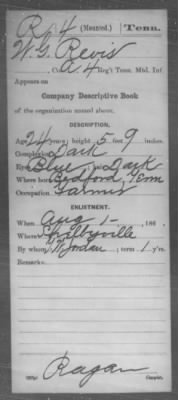 R 4 (Mounted.) Tenn.
W. G. Revis
, Co. A. 4 Reg't Tenn. Mtd. Inf.
Appears on
Company Descriptive Book
of the organization named above.
DESCRIPTION.
Age 24 years; height 5 feet 9 inches.
Complexion Dark
Eyes Blue ; hair Dark
Where born Bedford, Tenn
Occupation Farmer
ENLISTMENT.
When Aug 1- , 186 .
Where Shelbyville
By whom Jordan ; term 1 y'rs.
Remarks:
Ragan
Copyist.